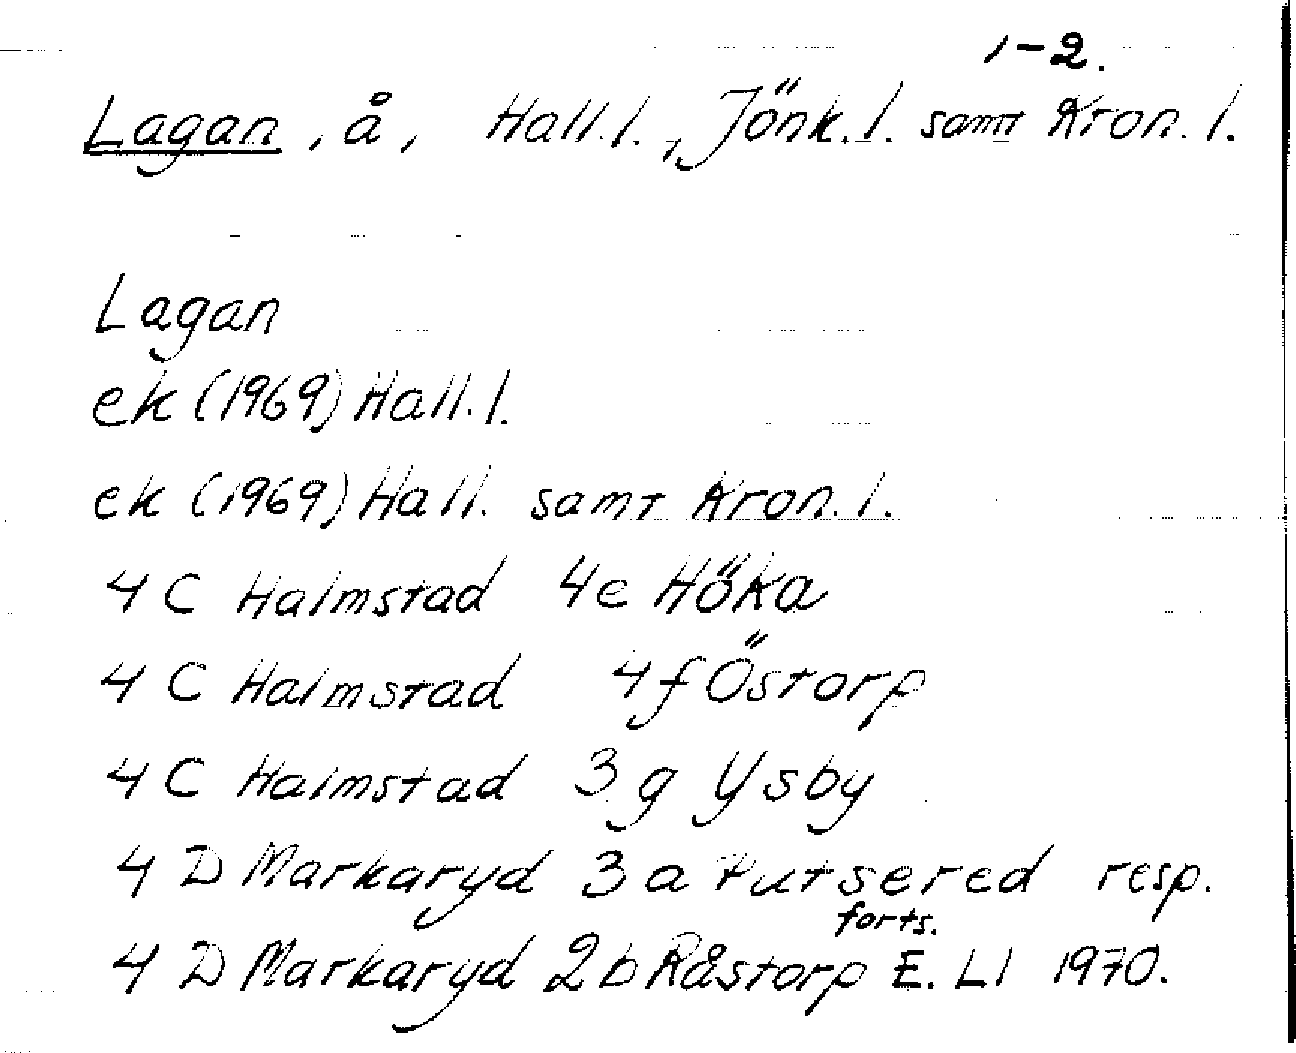 1-2.
Lagan, å, Hall.l., Jönk.l. samt Kron.l.
Lagan
ek (1969) Hall.l.
ek (1969) Hall. samt Kron.l.
4 C Halmstad 4e Höka
4 C Halmstad 4f Östorp
4 C Halmstad 3g Ysby
4 D Markaryd 3a Putsered resp.
forts.
4 D Markaryd 2b Råstorp E. Ll 1970.